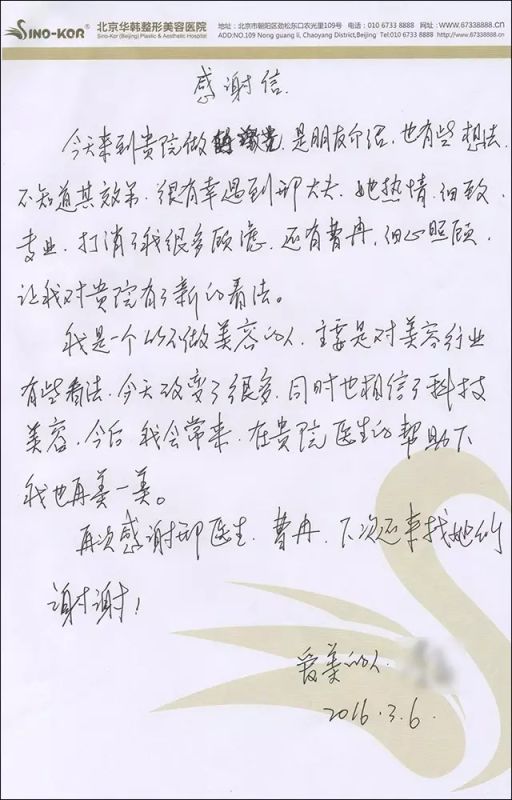 SINO-KOR®
北京华韩整形美容医院
Sino-Kor (Beijing) Plastic & Aesthetic Hospital
地址：北京市朝阳区劲松东口农光里109号 电话：010 6733 8888 网址：www.67338888.cn
ADD:NO.109 Nong guang li, Chaoyang District,Beijing Tel:010 6733 8888 Http://www.67338888.cn
感谢信
今天来到贵院做 是朋友介绍，也有些想法
不知道其效果，很有幸遇到邢大夫，她热情，细致，
专业，打消了我很多顾虑，还有曹冉，细心照顾，
让我对贵院有了新的看法。
我是一个从不做美容的人，主要是对美容行业
有些看法，今天改变了很多，同时也相信了科技
美容，今后，我会常来，在贵院医生的帮助下
我也再美一美。
再次感谢邢医生，曹冉，下次还来找她们
谢谢！
爱美的人
2016.3.6.